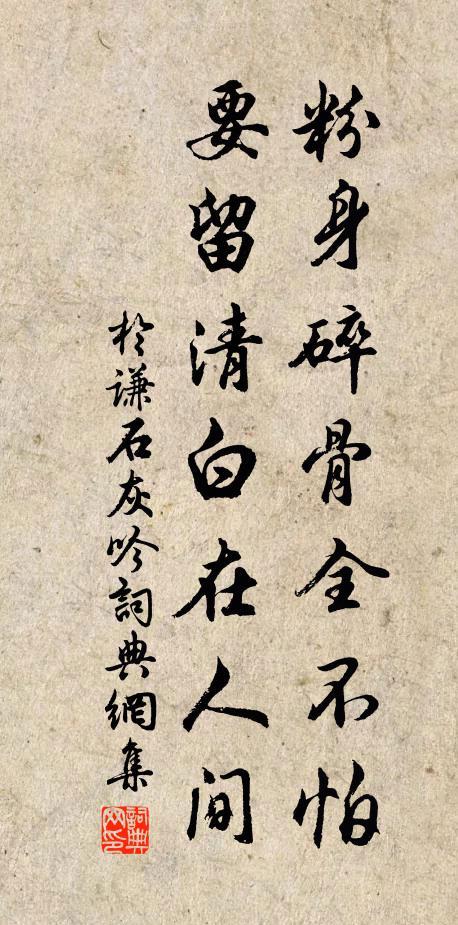 粉身碎骨全不怕
要留清白在人间
於谦石灰吟詞典網集
詞典网印